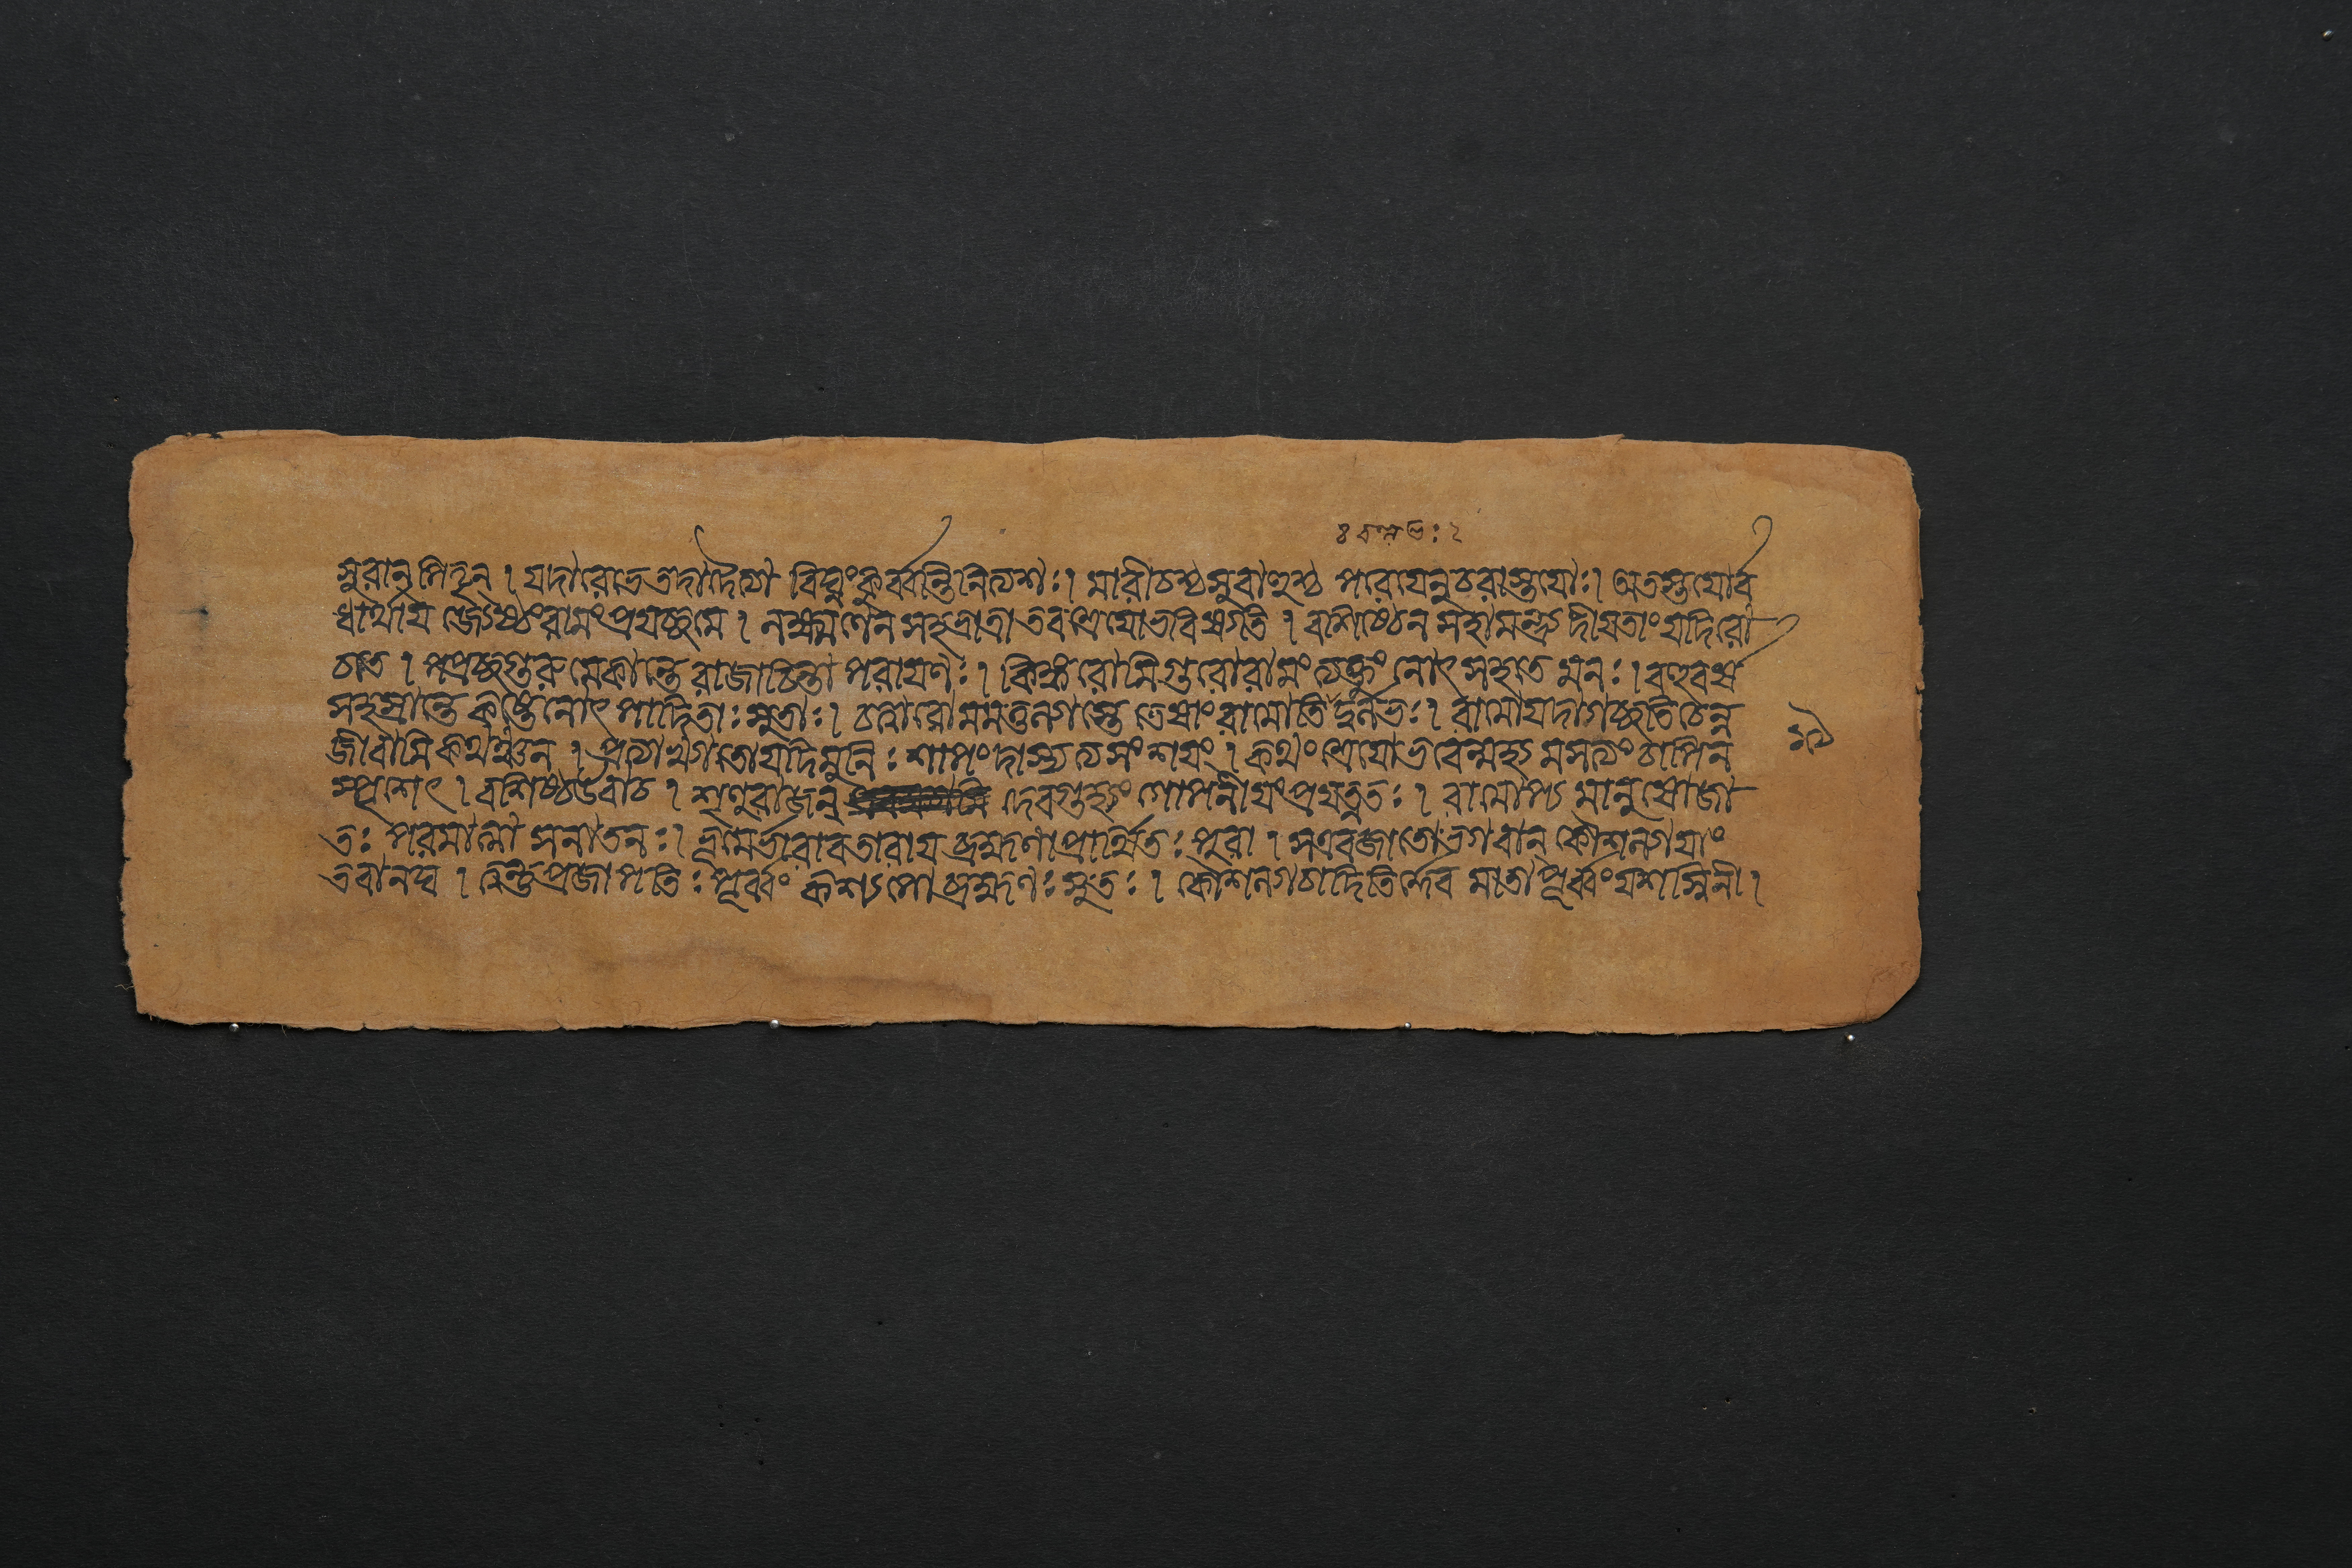 সুরান্পিতৄন্ । যদারভে তদাদৈত্যা বিঘ্নংকুর্ব্বন্তিনিত্যশঃ। মারীচশ্চসুবাহুশ্চ পরেচানুচরাস্তয়োঃ। অতস্তয়োর্ব
ধার্থায় জ্যেষ্ঠংরামংপ্রযচ্ছমে । লক্ষ্মণেন সহভ্রাত্রা তবশ্রেয়োভবিষ্যতি । বশিষ্ঠেন সহামন্ত্র্য দীয়তাংযদিরো
চতে । পপ্রচ্ছগুরুমেকান্তে রাজাচিন্তা পরায়ণঃ। কিঙ্করোমিগুরোরামং ত্যক্তুং নোৎসহতে মনঃ। বহুবর্ষ
সহস্রান্তে কষ্টেনোৎপাদিতাঃসুতাঃ। চত্বারোমমতুল্যাস্তে তেষাং রামোতিদুর্লভঃ। রামোযদাগচ্ছতিচেন্ন
জীবামিকথঞ্চন । প্রত্যাখ্যাতোযদিমুনিঃশাপংদাস্যত্যসংশয়ং । কথং শ্রেয়োভবেন্মহ্যমসত্যং চাপিন
স্পৃশেৎ । বশিষ্ঠউবাচ । শৃণুরাজন্ দেবগুহ্যং গোপনীয়ংপ্রযত্নতঃ । রামোপ্য মানুষোজা
তঃ পরমাত্মা সনাতনঃ। ভূমের্ভারাবতারায় ব্রহ্মণাপ্রার্থিতঃ পুরা । সএবজাতোভগবান্ কৌশল্যায়াং
তবানঘ । ত্বন্তুপ্রজাপতিঃপূর্ব্বং কশ্যপো ব্রহ্মণঃসুতঃ। কৌশল্যাচাদিতির্দ্দেব মাতাপূর্ব্বংযশস্বিনী।